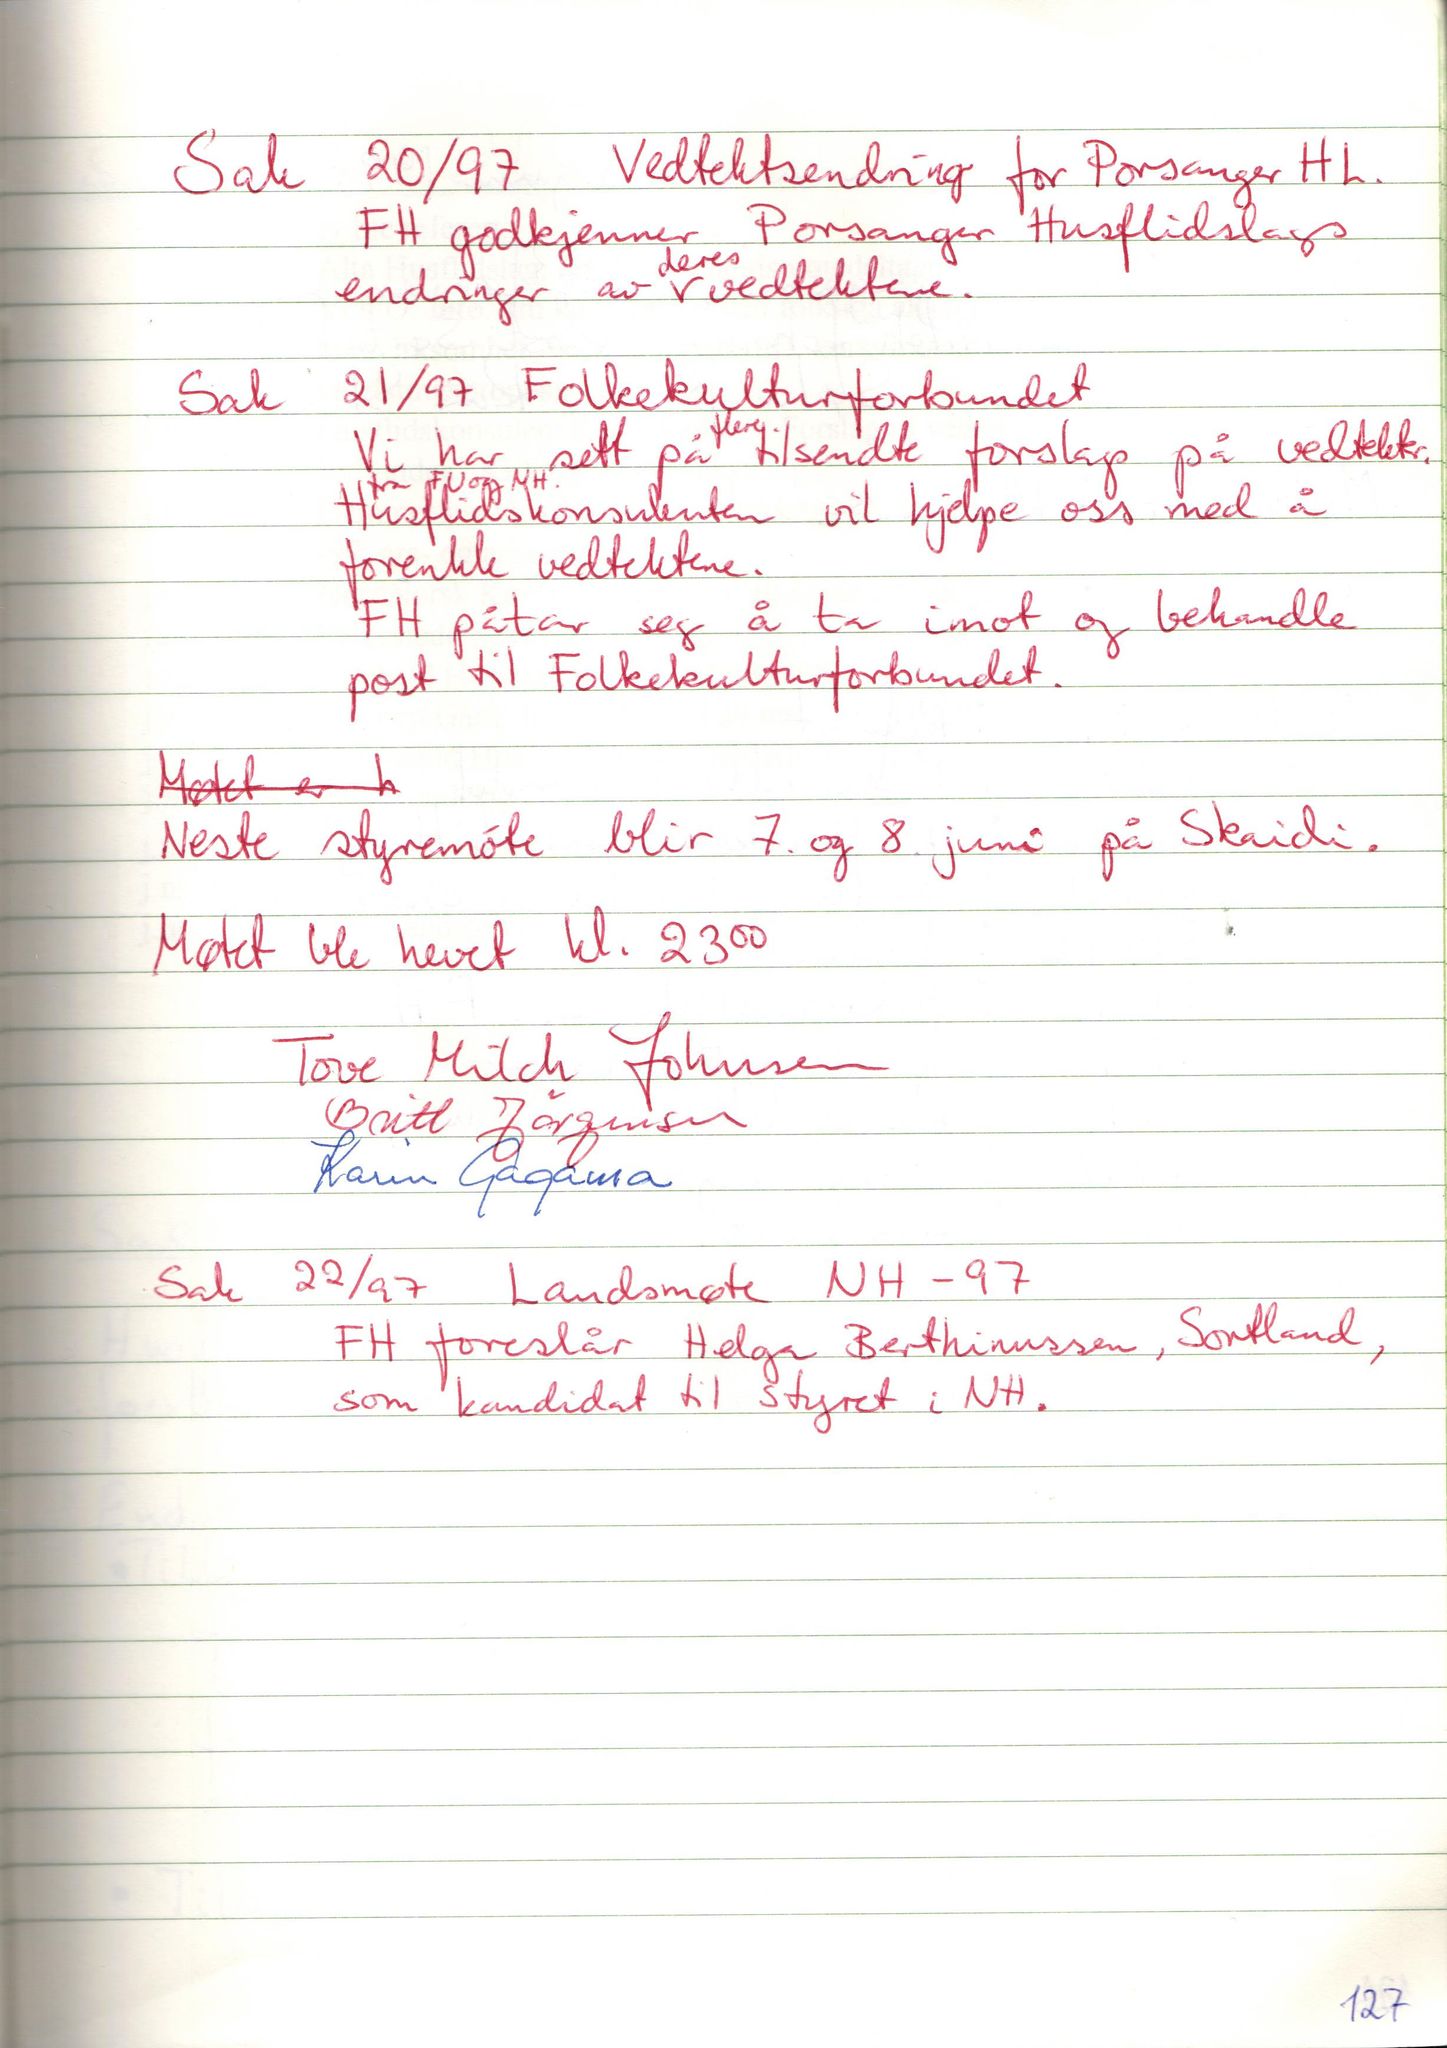 Sak 20/97 Vedtektsendring for Porsanger HL.
FH godkjenner Porsanger Husflidslags
endringer av deres vedtektene.
Sak 21/97 Folkekulturforbundet
Vi har sett på flere tilsendte forslag på vedtekter.
fra FU og NH.
Husflidskonsulenten vil hjelpe oss med å
forenkle vedtektene.
FH påtar seg å ta imot og behandle
post til Folkekulturforbundet.
Møtet er h
Neste styremöte blir 7. og 8. juni på Skaidi.
Møtet ble hevet kl. 2300
Tove Milch Johnsen
Britt Jörgensen
Karin Gaganra
Sak 22/97 Landsmøte NH - 97
FH foreslår Helga Berthinussen, Sortland,
som kandidat til styret i NH.
127